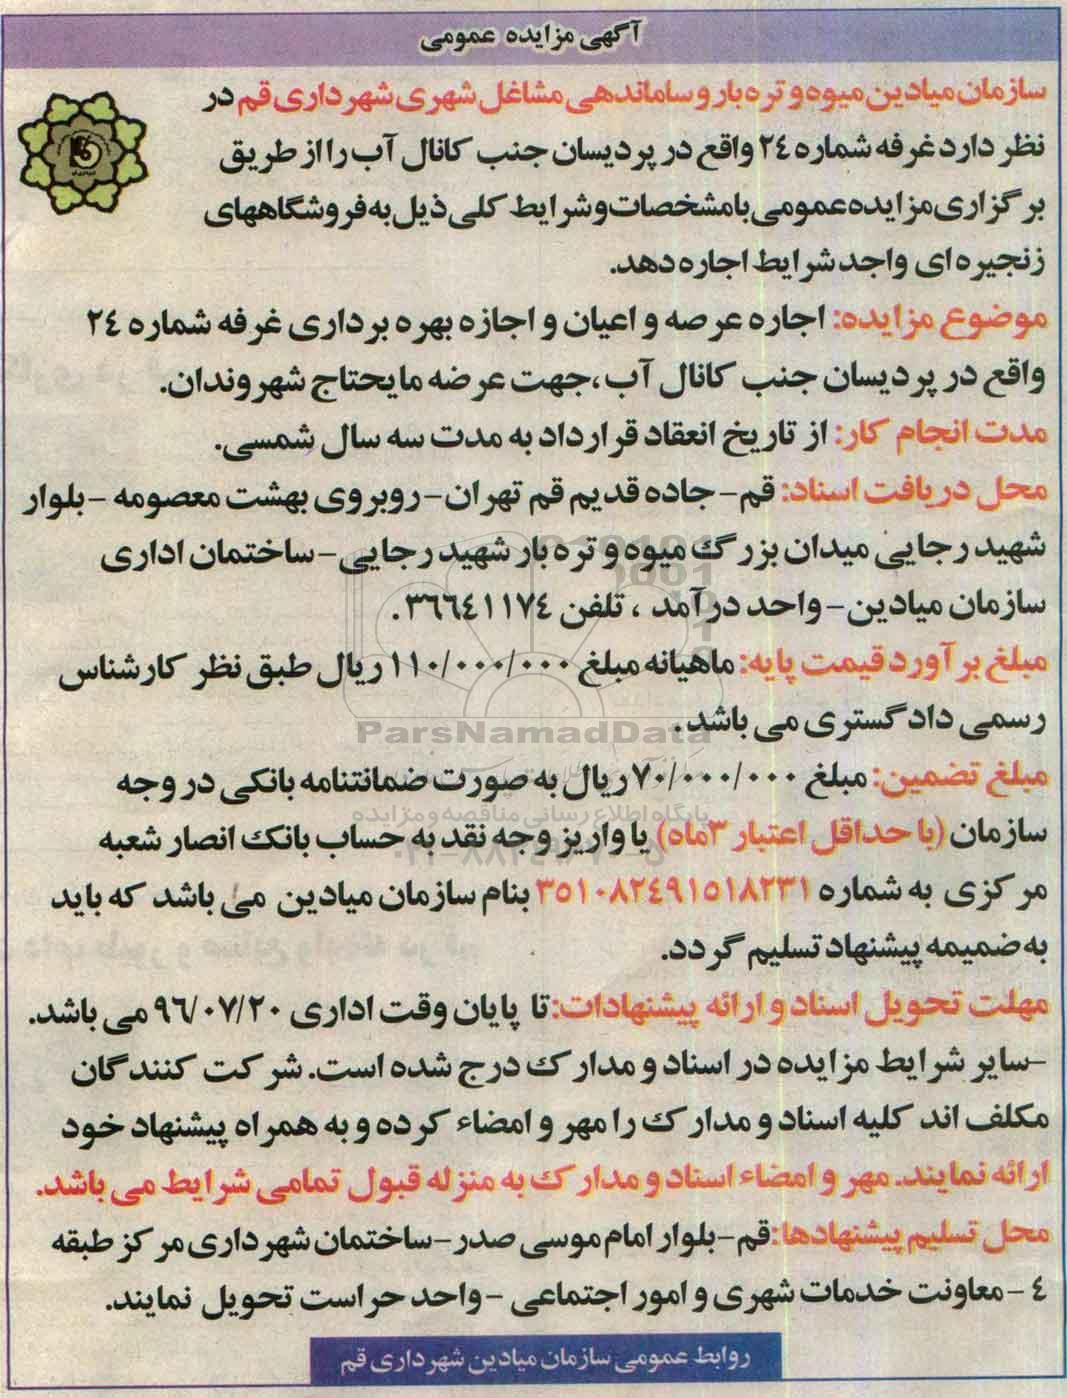 آگهی مزایده عمومی
سازمان میادین میوه و تره بار و ساماندهی مشاغل شهری شهرداری قم در
نظر دارد غرفه شماره ۲٤ واقع در پردیسان جنب کانال آب را از طریق
برگزاری مزایده عمومی با مشخصات و شرایط کلی ذیل به فروشگاههای
زنجیره ای واجد شرایط اجاره دهد.
موضوع مزایده: اجاره عرصه و اعیان و اجازه بهره برداری غرفه شماره ۲٤
واقع در پردیسان جنب کانال آب،جهت عرضه مایحتاج شهروندان.
مدت انجام کار: از تاریخ انعقاد قرارداد به مدت سه سال شمسی.
محل دریافت اسناد: قم- جاده قدیم قم تهران- روبروی بهشت معصومه -بلوار
شهید رجایی میدان بزرگ میوه و تره بار شهید رجایی- ساختمان اداری
سازمان میادین- واحد درآمد ، تلفن ۳٦٦٤۱۱۷٤.
مبلغ برآورد قیمت پایه: ماهیانه مبلغ ۱۱۰/۰۰۰/۰۰۰ ریال طبق نظر کارشناس
رسمی دادگستری می باشد.
ParsNamadData
مبلغ تضمین: مبلغ ۷۰/۰۰۰/۰۰۰ ریال به صورت ضمانتنامه بانکی در وجه
پایگاه اطلاع رسانی مناقصه و مزایده
سازمان (با حداقل اعتبار ۳ماه) یا واریز وجه نقد به حساب بانک انصار شعبه
مرکزی به شماره ۳۵۱۰۸۲٤۹۱۵۱۸۲۳۱ بنام سازمان میادین می باشد که باید
به ضمیمه پیشنهاد تسلیم گردد.
مهلت تحویل اسناد و ارائه پیشنهادات: تا پایان وقت اداری ۹٦/۰۷/۲۰ می باشد.
-سایر شرایط مزایده در اسناد و مدارک درج شده است. شرکت کنندگان
مکلف اند کلیه اسناد و مدارک را مهر و امضاء کرده و به همراه پیشنهاد خود
ارائه نمایند. مهر و امضاء اسناد و مدارک به منزله قبول تمامی شرایط می باشد.
محل تسلیم پیشنهادها: قم-بلوار امام موسی صدر-ساختمان شهرداری مرکز طبقه
٤ - معاونت خدمات شهری و امور اجتماعی - واحد حراست تحویل نمایند.
روابط عمومی سازمان میادین شهرداری قم